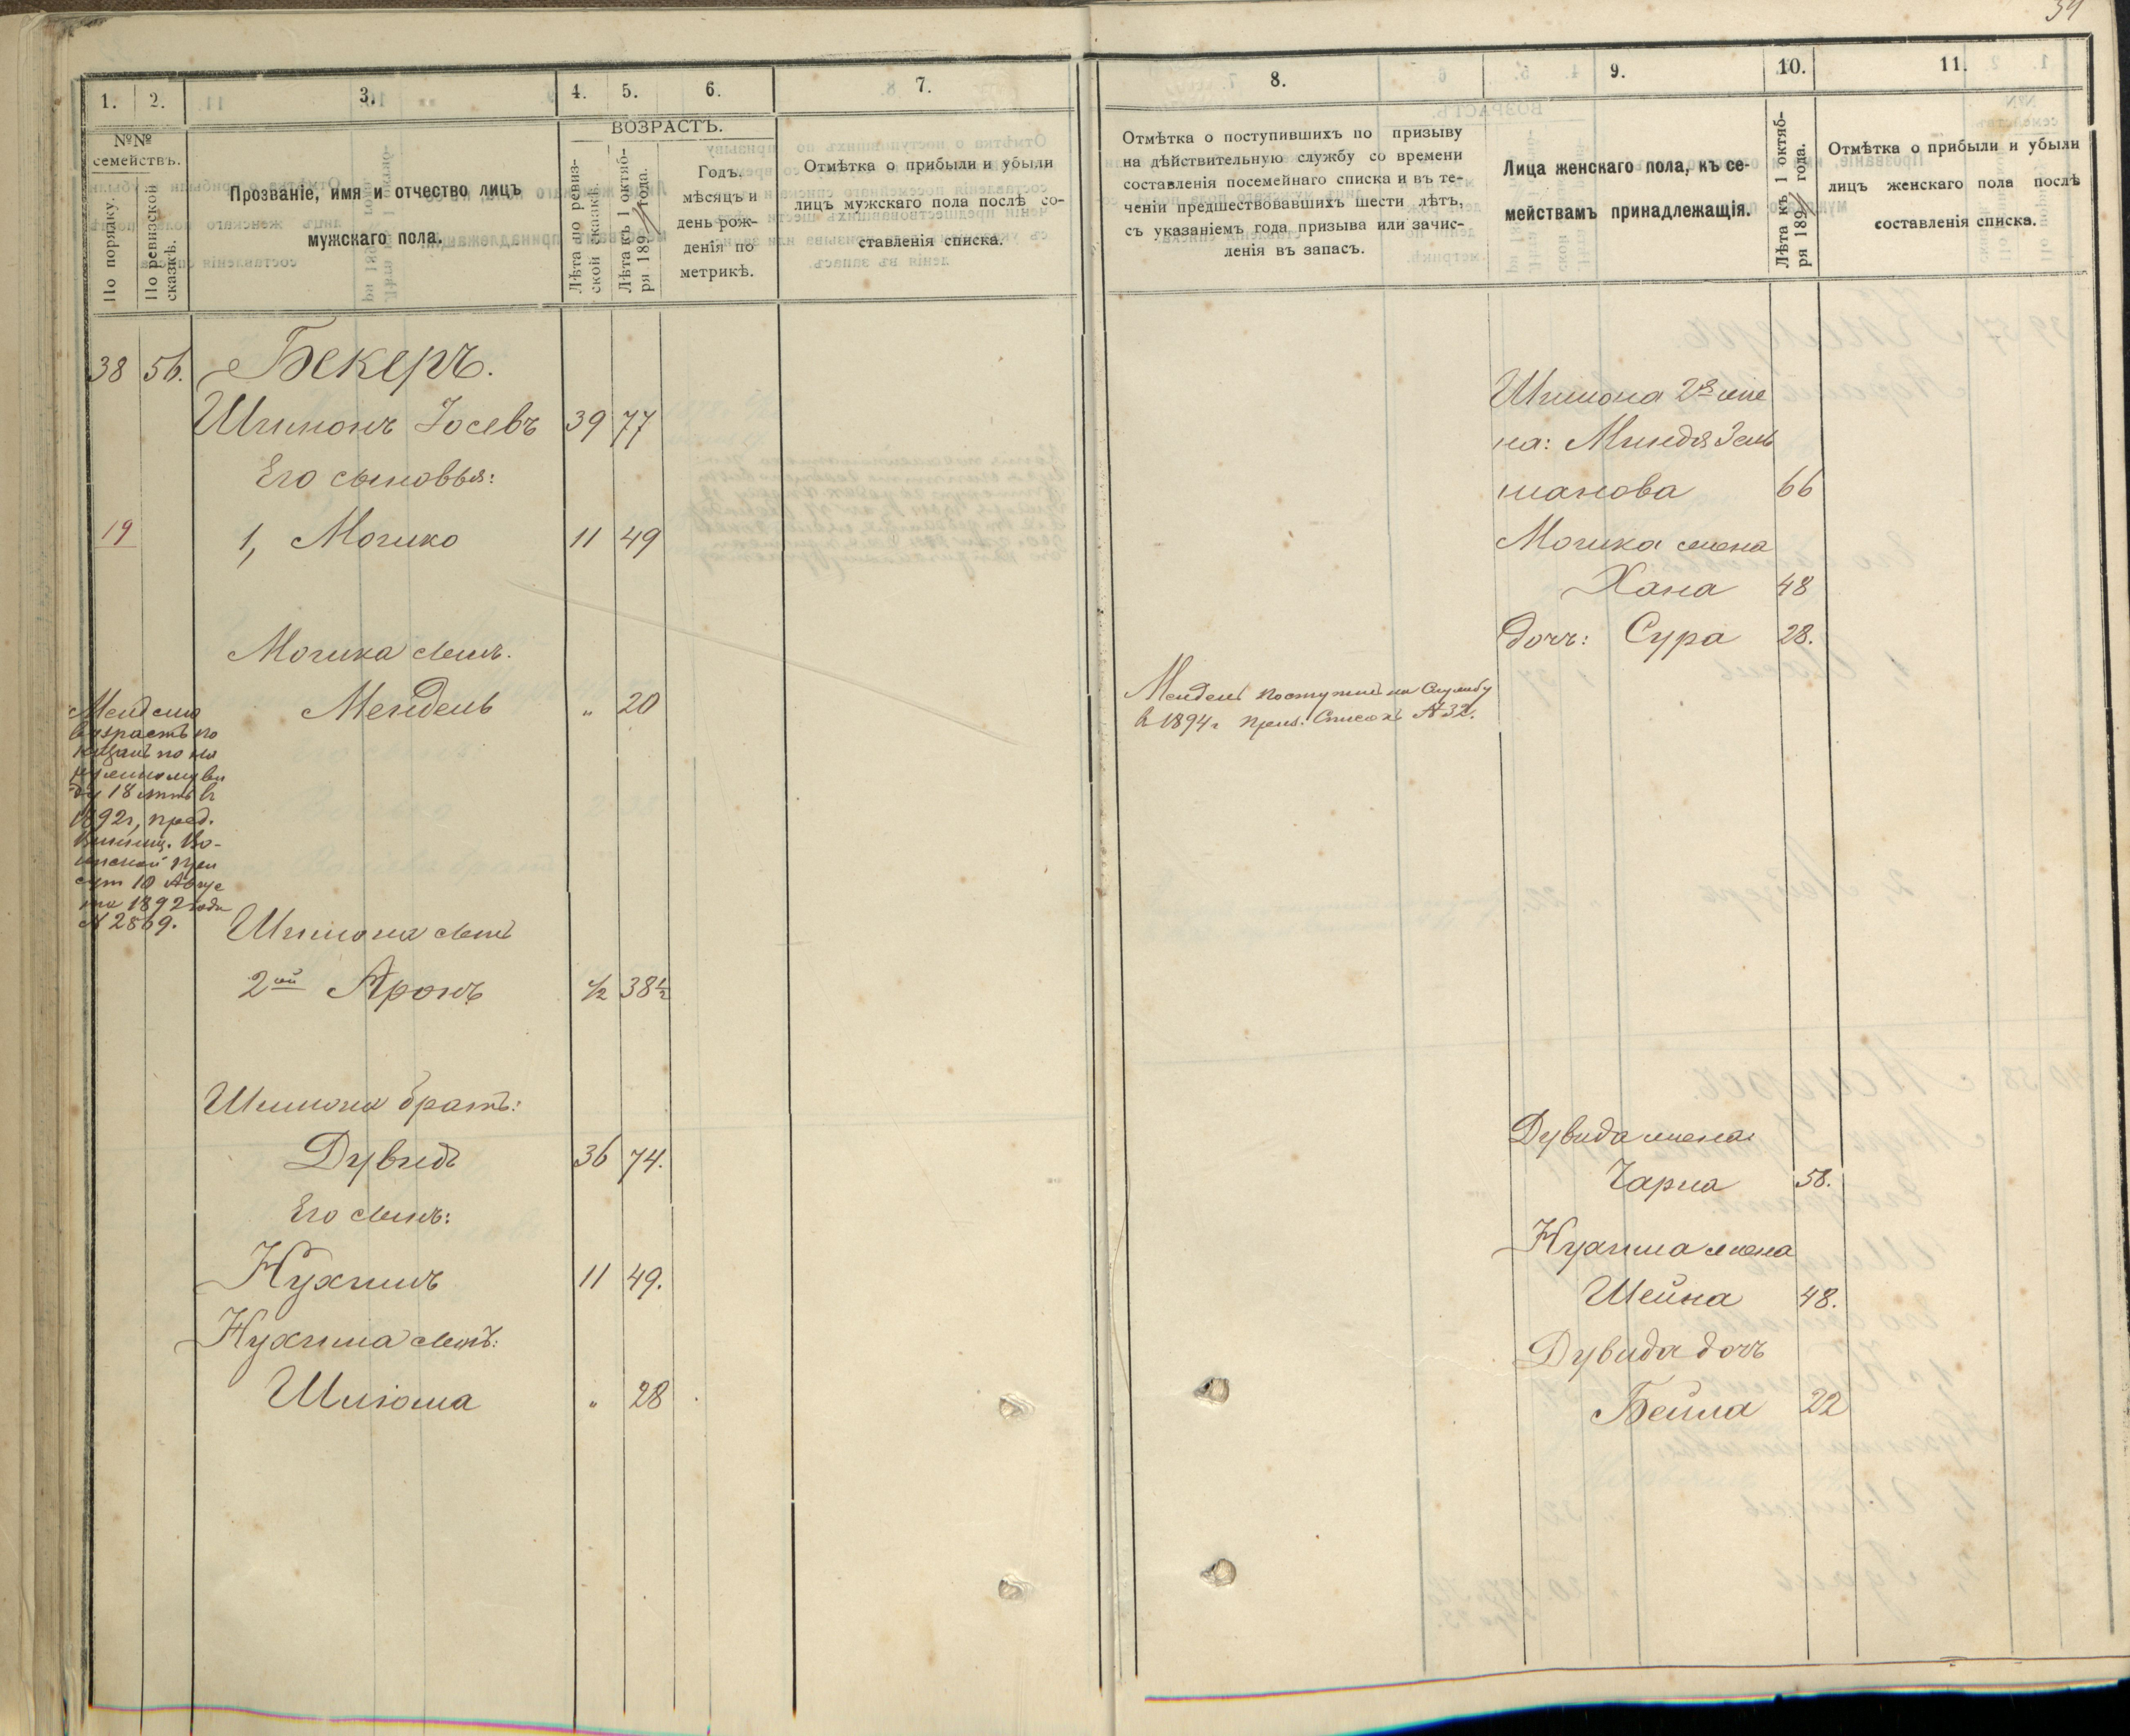 34
1. 2. 3. 4. 5. 6. 7.
№№ семействъ.
По порядку.
По ревизской сказкѣ.
Прозваніе, имя и отчество лицъ
мужскаго пола.
ВОЗРАСТЪ.
Лѣта по ревиз-
ской сказкѣ.
Лѣта къ 1 октяб-
ря 189 года.
Годъ,
мѣсяцъ и
день рож-
денія по
метрикѣ.
Отмѣтка о прибыли и убыли
лицъ мужскаго пола послѣ со-
ставленія списка.
38 56. Бекеръ.
Шимонъ Іосевъ 39 77
Его сыновья:
19 1, Мошко 11 49
Мошка сынъ.
Мендель " 20
Менделю
возрастъ по
казанъ по на
ружному ви
ду 18 лѣтъ въ
1892г, пред.
Винниц. Во-
инской при
сут 10 Авгус
та 1892 года
№ 2869.
Шимона сынъ
2ой Аронъ ½ 38½
Шимона братъ:
Дувидъ 36 74.
Его сынъ:
Нухимъ 11 49.
Нухима сынъ:
Шлиома " 28
8. 9. 10. 11.
Отмѣтка о поступившихъ по призыву
на дѣйствительную службу со времени
составленія посемейнаго списка и въ те-
ченіи предшествовавшихъ шести лѣтъ,
съ указаніемъ года призыва или зачис-
ленія въ запасъ.
Лица женскаго пола, къ се-
мействамъ принадлежащія.
Лѣта къ 1 октяб-
ря 189 года.
Отмѣтка о прибыли и убыли
лицъ женскаго пола послѣ
составленія списка.
Шимона 2я же
на: Миндля Зель
манова 66
Мошка жена
Хана 48
дочь: Сура 28.
Мендель поступилъ на Службу
въ 1894г приз. Списокъ №32.
Дувида жена
Чарна 58.
Нухима жена
Шейна 48.
Дувида дочь
Бейла 22